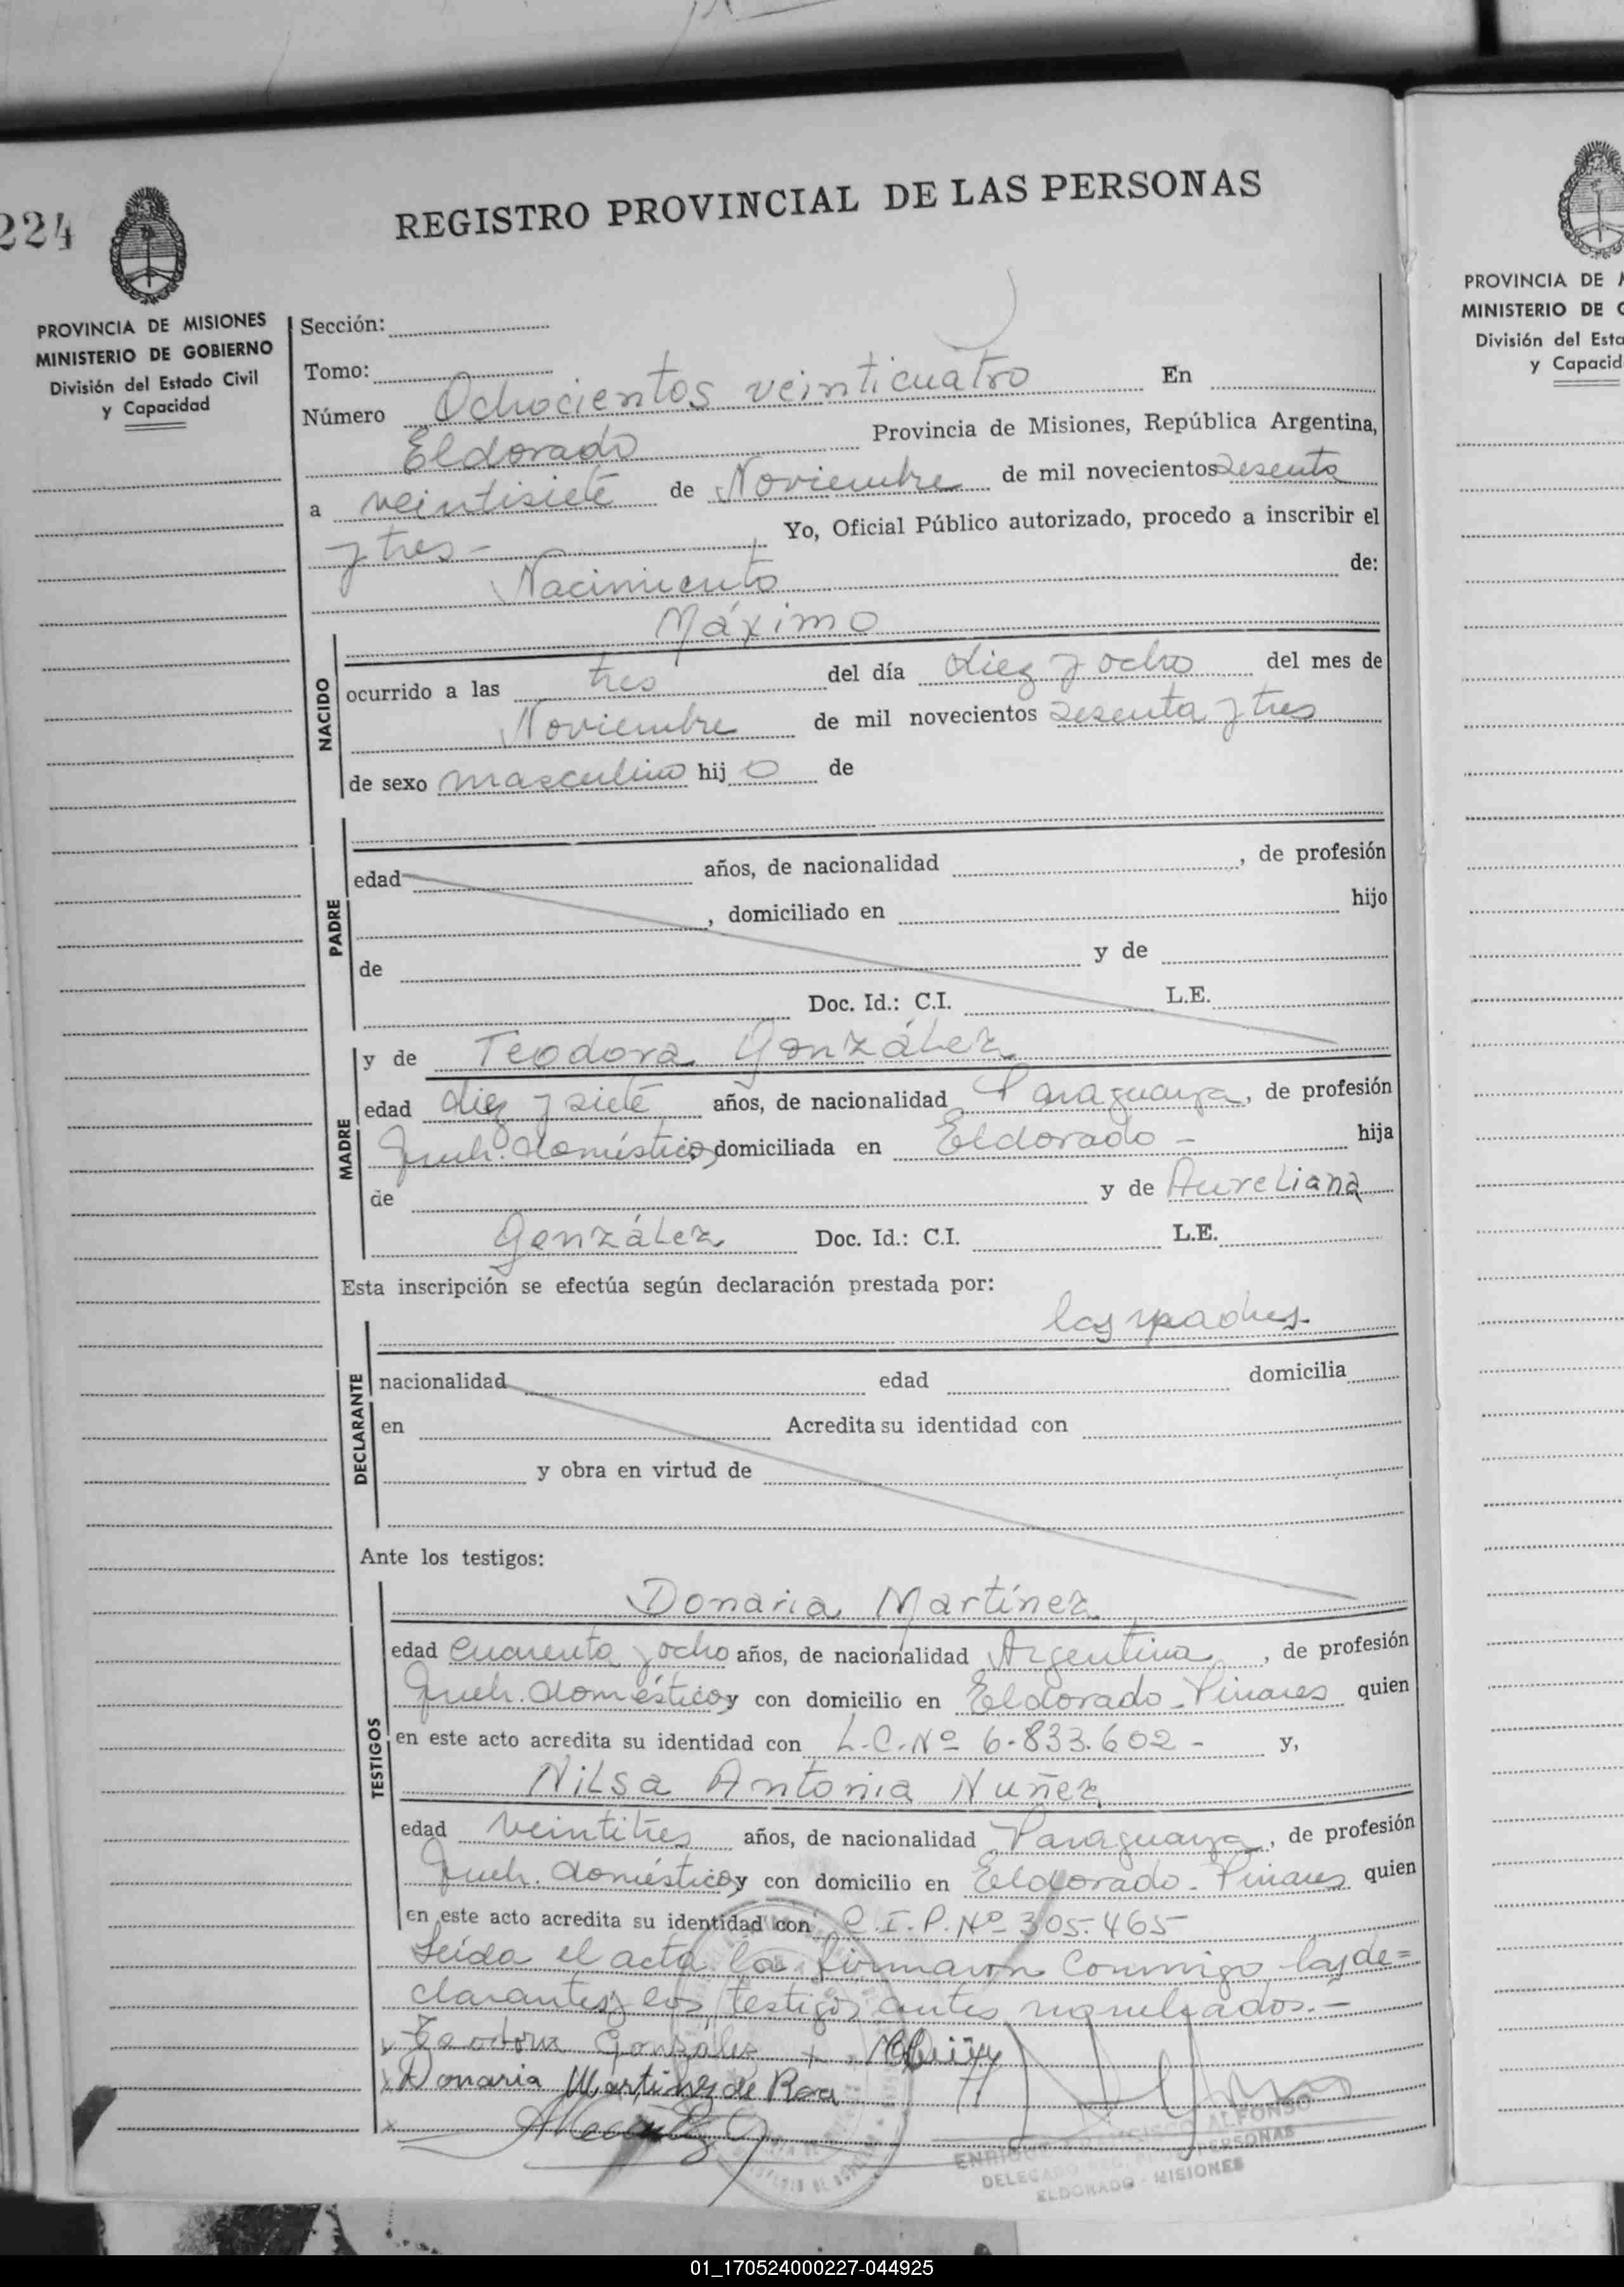 224
REGISTRO PROVINCIAL DE LAS PERSONAS
PROVINCIA DE MISIONES
MINISTERIO DE GOBIERNO
División del Estado Civil
y Capacidad
Sección:
Tomo:
Número Ochocientos veinticuatro En
Eldorado Provincia de Misiones, República Argentina,
a veintisiete de Noviembre de mil novecientos sesenta
y tres - Yo, Oficial Público autorizado, procedo a inscribir el
Nacimiento de:
Máximo
NACIDO
ocurrido a las tres del día diez y ocho del mes de
Noviembre de mil novecientos sesenta y tres
de sexo masculino hij o de
PADRE
edad años, de nacionalidad , de profesión
, domiciliado en hijo
de y de
Doc. Id.: C.I. L.E.
MADRE
y de Teodora González
edad diez y siete años, de nacionalidad Paraguaya, de profesión
Queh. doméstico, domiciliada en Eldorado - hija
de y de Aureliana
González Doc. Id.: C.I. L.E.
Esta inscripción se efectúa según declaración prestada por:
DECLARANTE
los padres-
nacionalidad edad domicilia
en Acredita su identidad con
y obra en virtud de
Ante los testigos:
TESTIGOS
Donaria Martínez
edad cuarenta y ocho años, de nacionalidad Argentina, de profesión
Queh. doméstico y con domicilio en Eldorado - Pinares quien
en este acto acredita su identidad con L.C.Nº 6.833.602 - y,
Nilsa Antonia Nuñez
edad veintitres años, de nacionalidad Paraguaya, de profesión
Queh. doméstico y con domicilio en Eldorado - Pinares quien
en este acto acredita su identidad con C.I.P. Nº 305.465
Leída el acta la firmaron conmigo los de=
clarantes y los testigos antes
Teodora González +
x Donaria Martinez de Roa
x
ENRIQUE FRANCISCO ALFONSO
DELEGADO REG. PERSONAS
ELDORADO - MISIONES
PROVINCIA DE
MINISTERIO DE
División del Esta
y Capacid
01_170524000227-044925